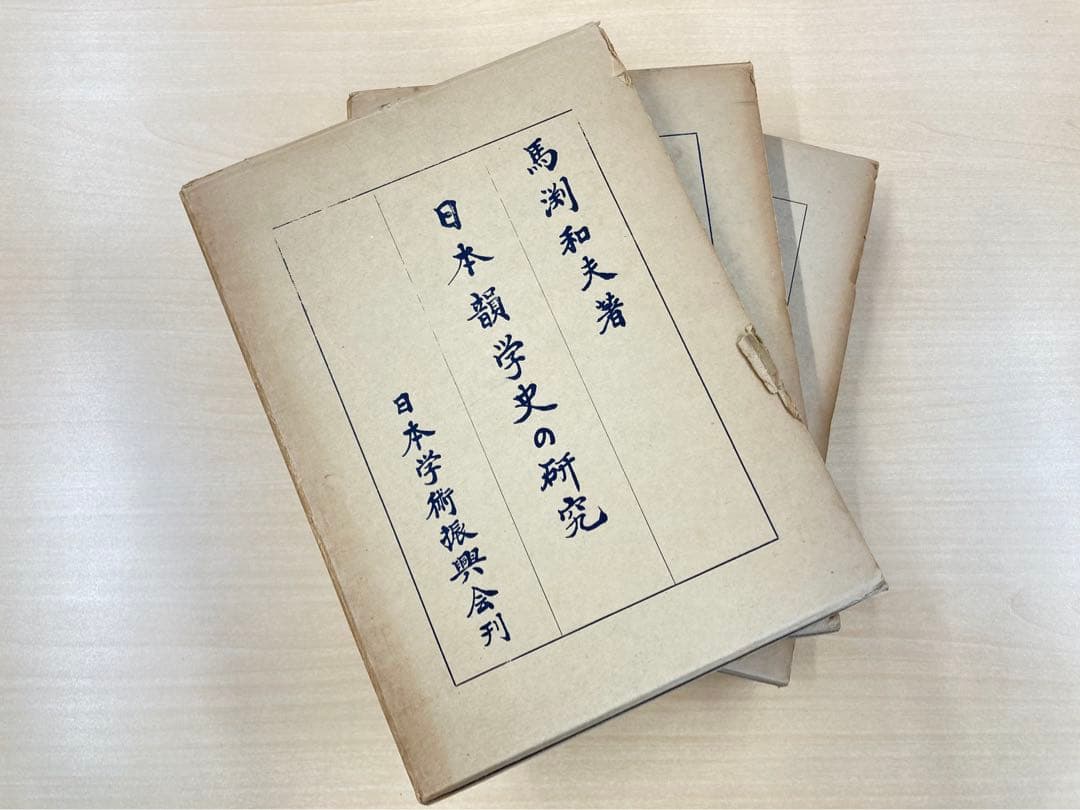 馬渕和夫著
日本韻学史の研究
日本学術振興会刊